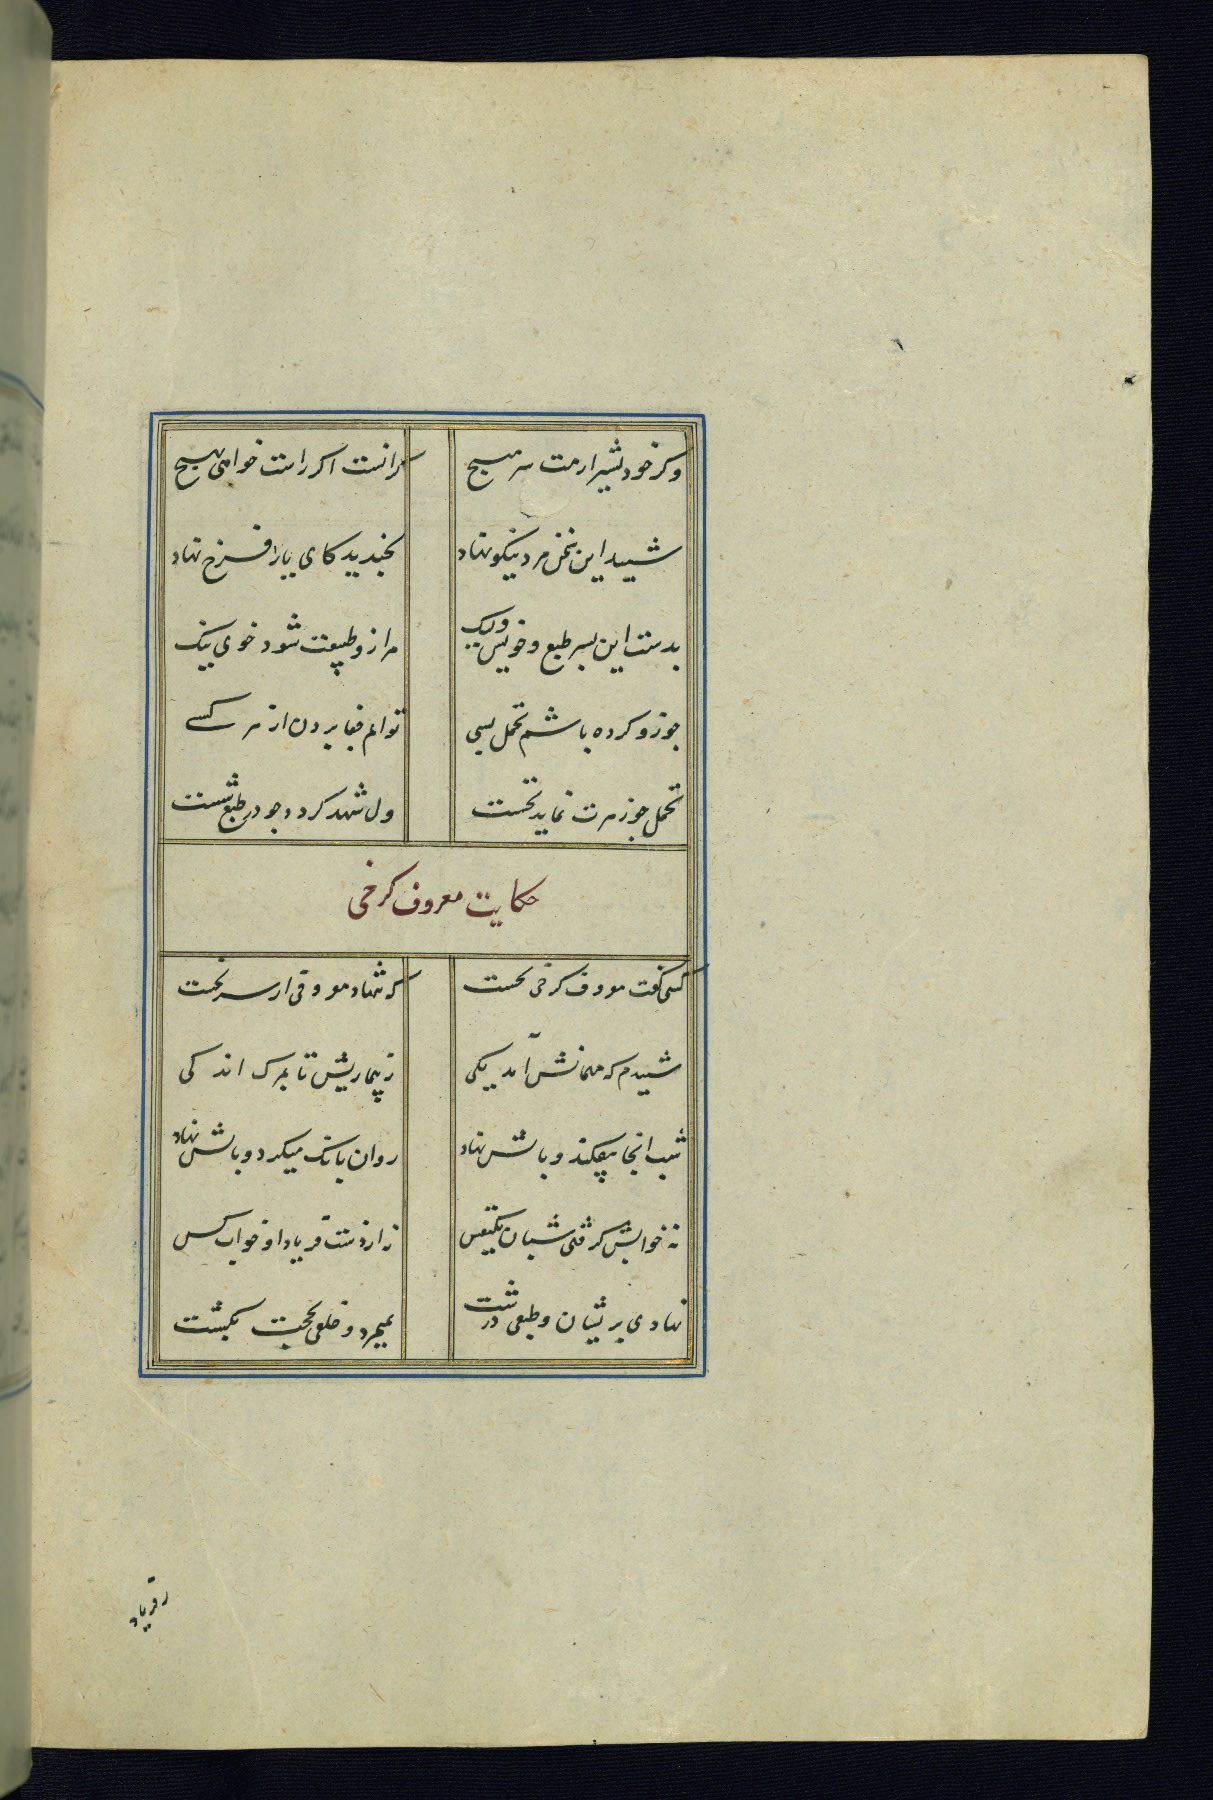 وگر خود پشیزار مت سر مپیچ گرانست اگر راست خواهی بهیچ
شنید این سخن مرد نیکو نهاد بخندید کای یار فرخ نهاد
بدست این پسر طبع و خویش ولیک مرا زو طبیعت شود خوی نیک
چو زو کرده باشم تحمل بسی توانم جفا بردن از هر کسے
تحمل چو زهرت نماید نخست ولی شهد گردد چو در طبع رست
حکایت معروف کرخی
کسی گفت معروف کرخی نجست که ننهاد معروفی از سر نخست
شنیدم که مهمانش آمد یکی ز بیماریش تا بمرگ اندکی
شب آنجا بیفکند و بالش نهاد روان بانگ میکرد و بالش نهاد
نه خوابش گرفتی شبان یکنفس نه از دست فریاد او خواب کس
نهادی پریشان و طبعی درشت نمیمرد و خلقی بحجت بکشت
ز فریاد